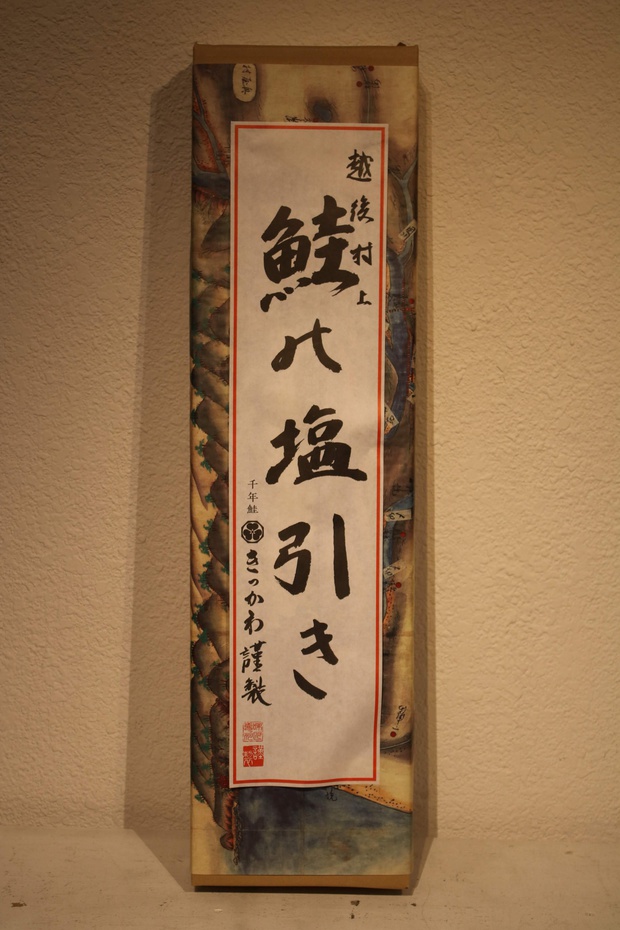 越後村上
鮭の塩引き
千年鮭
きっかわ謹製